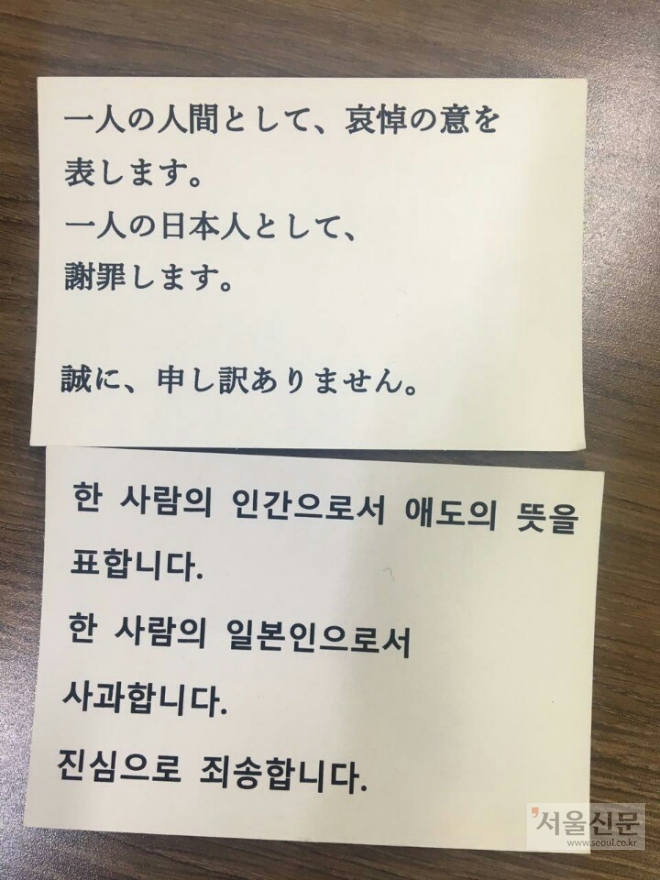 一人の人間として、哀悼の意を
表します。
一人の日本人として、
謝罪します。
誠に、申し訳ありません。
한 사람의 인간으로서 애도의 뜻을
표합니다.
한 사람의 일본인으로서
사과합니다.
진심으로 죄송합니다.
서울신문
www.seoul.co.kr